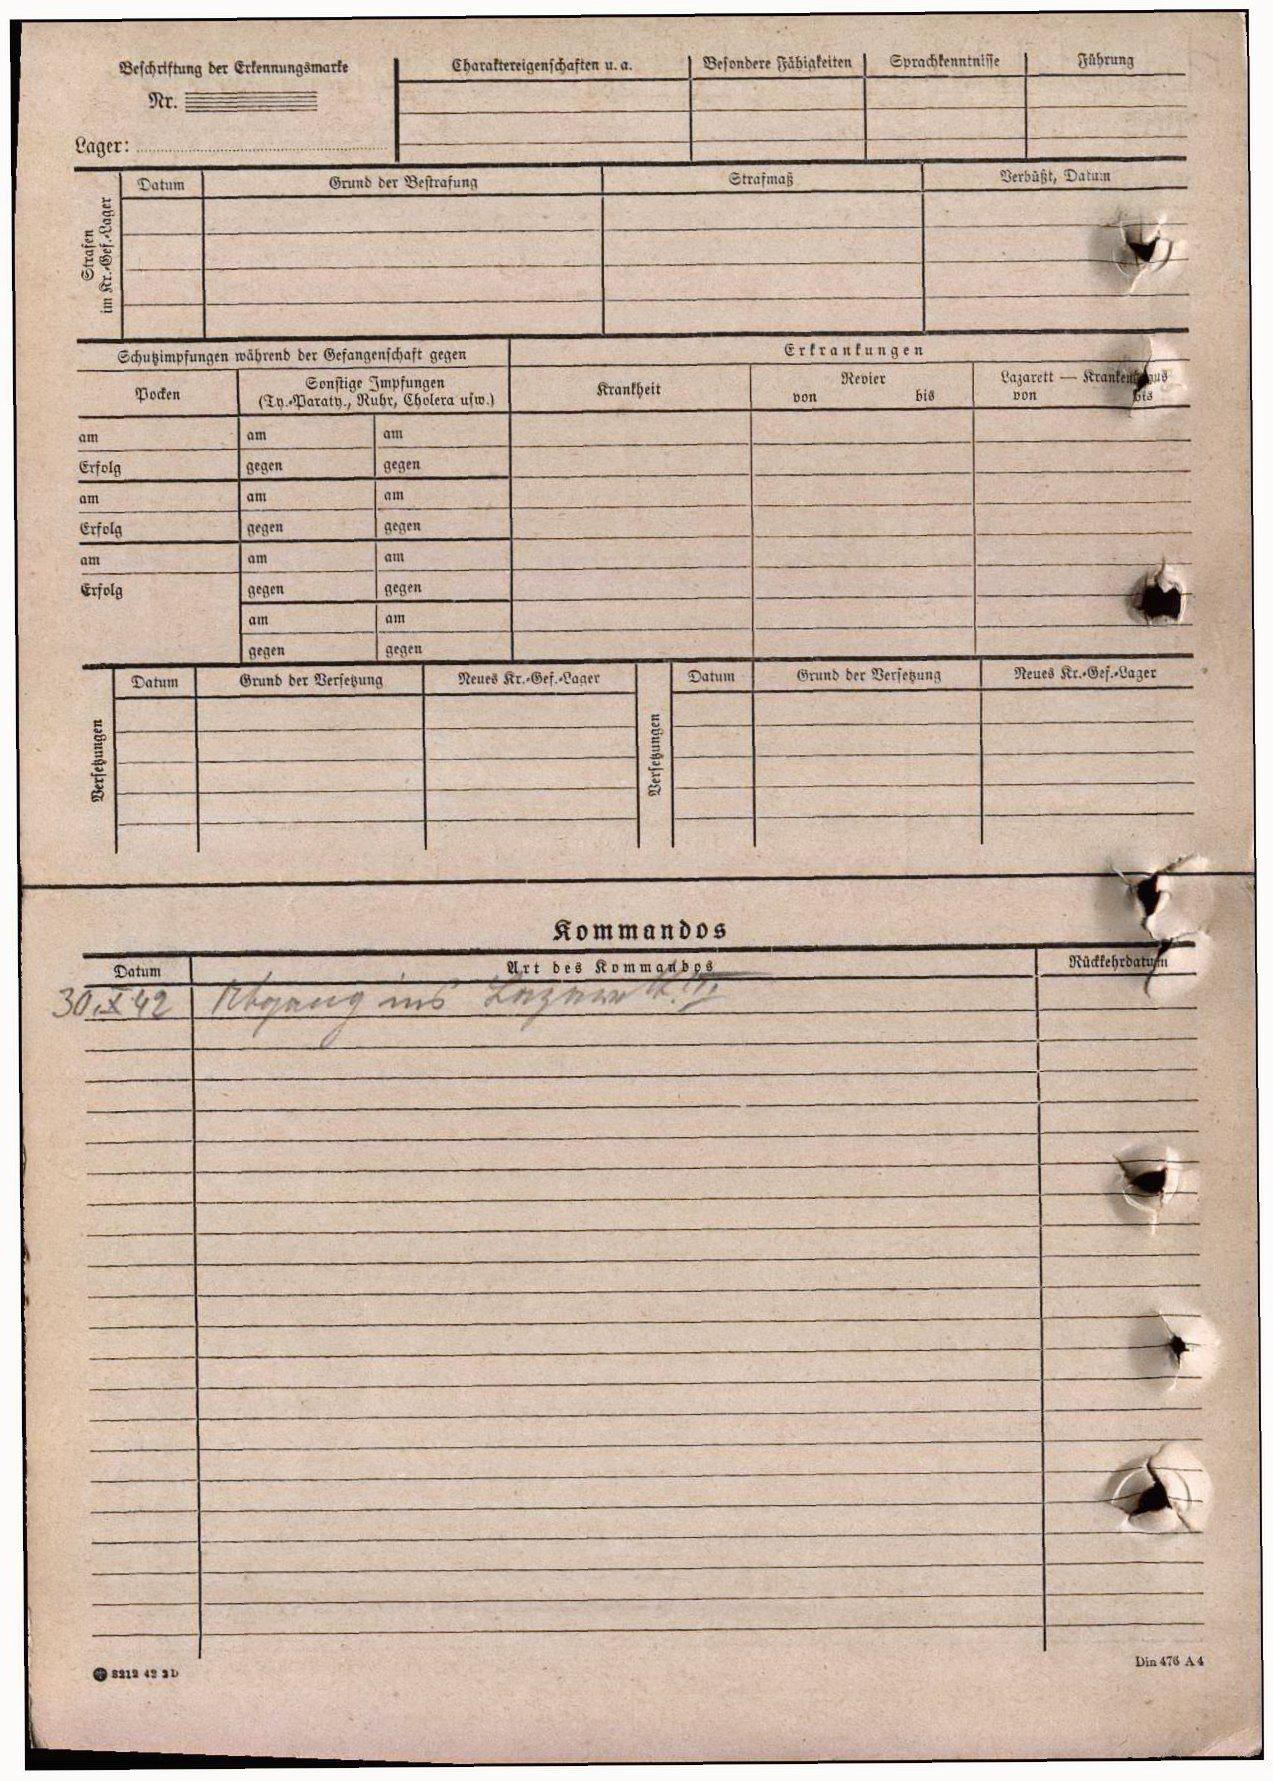 Beschriftung der Erkennungsmarke
Nr.
Lager:
Charaktereigenschaften u. a.
Besondere Fähigkeiten
Sprachkenntnisse
Führung
Strafen
im Kr.-Gef.-Lager
Datum
Grund der Bestrafung
Strafmaß
Verbüßt, Datum
Schutzimpfungen während der Gefangenschaft gegen
Erkrankungen
Pocken
Sonstige Impfungen
(Ty.-Paraty., Ruhr, Cholera usw.)
Krankheit
Revier
von bis
Lazarett — Krankenhaus
von bis
am am am
Erfolg gegen gegen
am am am
Erfolg gegen gegen
am am am
Erfolg gegen gegen
am am
gegen gegen
Versetzungen
Datum
Grund der Versetzung
Neues Kr.-Gef.-Lager
Versetzungen
Datum
Grund der Versetzung
Neues Kr.-Gef.-Lager
Kommandos
Datum
Art des Kommandos
Rückkehrdatum
30.X 42 Abgang ins Lazarett
8212 42 2D
Din 476 A4